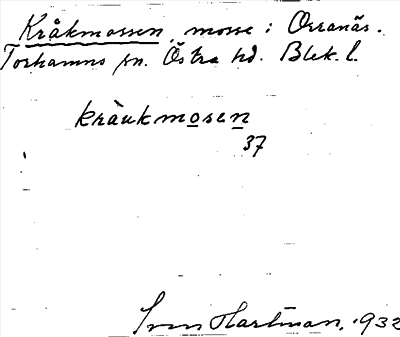 Kråkmossen, mosse i Orranäs.
Torhamns sn. Östra hd. Blek. l.
kràukmosen
37
Sven Hartman, 1932